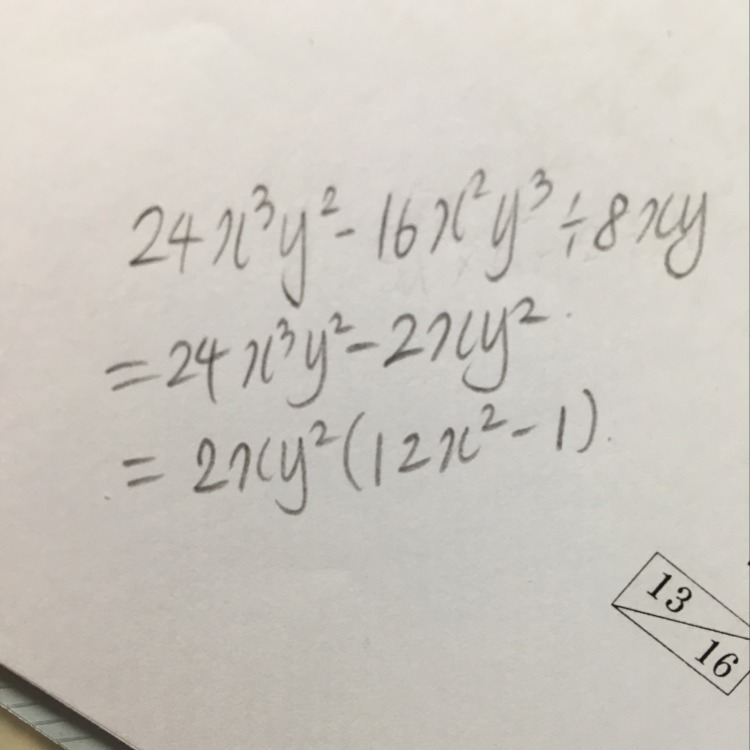 24x³y² - 16x²y³ ÷ 8xy
= 24x³y² - 2xy²
= 2xy²(12x² - 1)
13
16